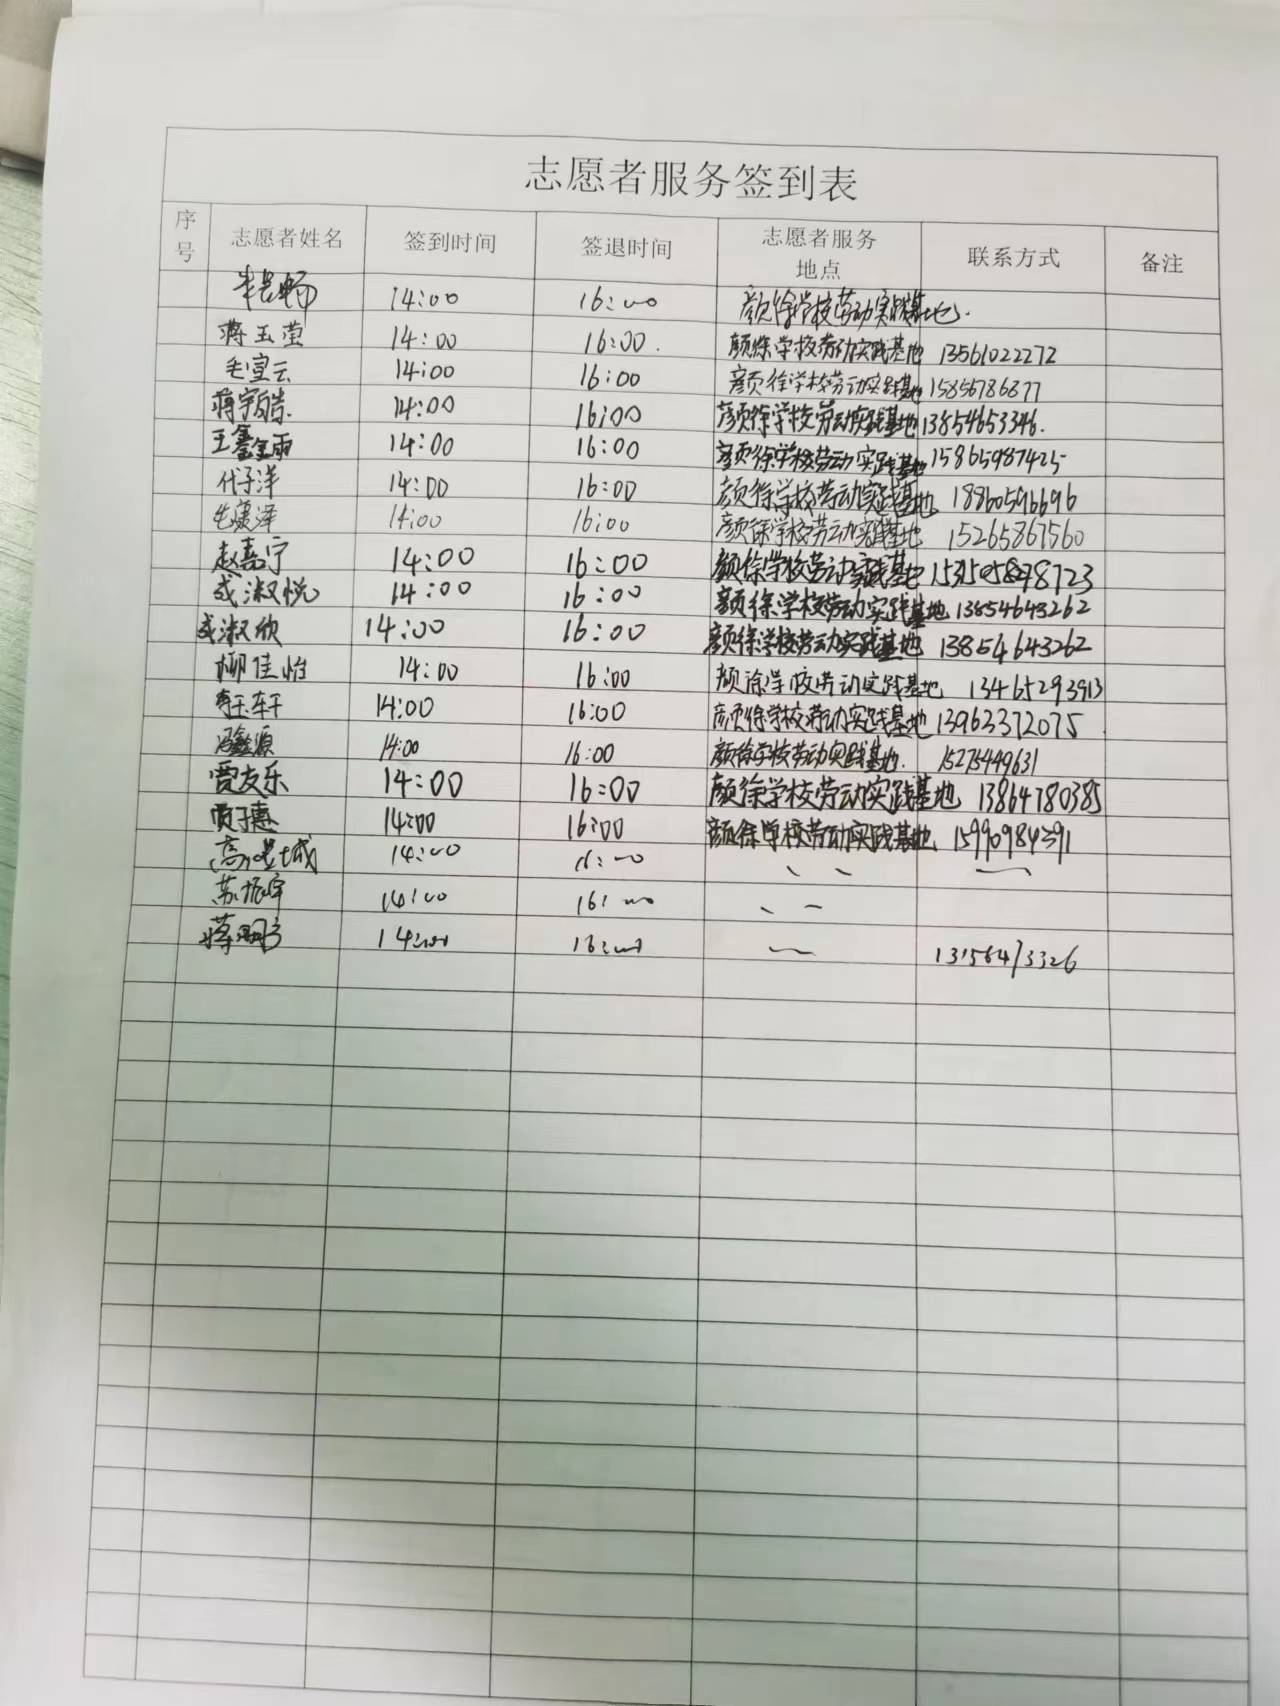 志愿者服务签到表
序号 志愿者姓名 签到时间 签退时间 志愿者服务地点 联系方式 备注
14:00 16:00 颜徐学校劳动实践基地.
蒋玉莹 14:00 16:00. 颜徐学校劳动实践基地 13561022272
毛宣云 14:00 16:00 颜徐学校劳动实践基地 15856786877
蒋宇皓 14:00 16:00 颜徐学校劳动实践基地 13854653346.
王鑫雨 14:00 16:00 颜徐学校劳动实践基地 15865987425
代子洋 14:00 16:00 颜徐学校劳动实践基地 18860596696
毛康泽 14:00 16:00 颜徐学校劳动实践基地 15265867560
赵嘉宁 14:00 16:00 颜徐学校劳动实践基地
成淑悦 14:00 16:00 颜徐学校劳动实践基地 13854643262
成淑欣 14:00 16:00 颜徐学校劳动实践基地 13854643262
柳佳怡 14:00 16:00 颜徐学校劳动实践基地 13465293913
14:00 16:00 颜徐学校劳动实践基地 13963372075
冯鑫源 14:00 16:00 颜徐学校劳动实践基地. 15275449631
贾友乐 14:00 16:00 颜徐学校劳动实践基地 13864780385
贾子惠 14:00 16:00 颜徐学校劳动实践基地 15990984391
14:00 16:00
苏振宇 14:00 16:00
14:00 16:00 13156473326